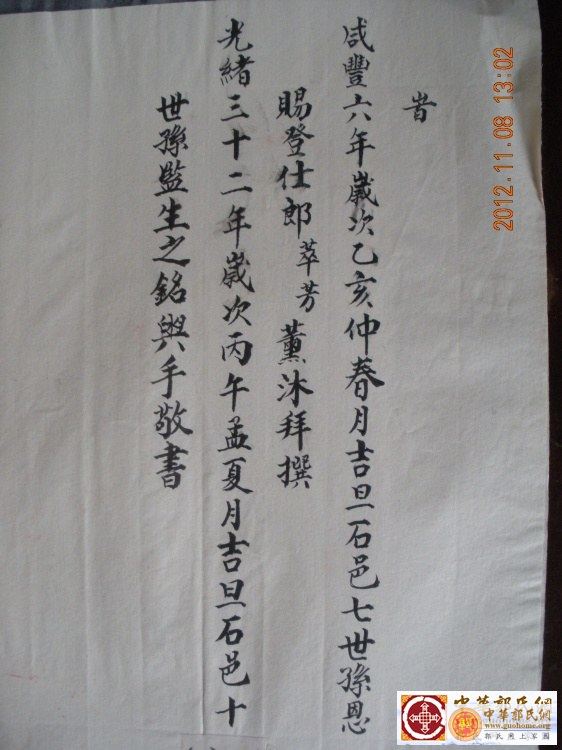 旹
咸豐六年嵗次乙亥仲春月吉旦石邑七世孫恩
賜登仕郎萃芳薰沐拜撰
光緒三十二年嵗次丙午孟夏月吉旦石邑十
世孫監生之銘與手敬書
2012.11.08 13:02
中華郭氏網
中華郭氏網
www.guohome.org
郭氏網上家園